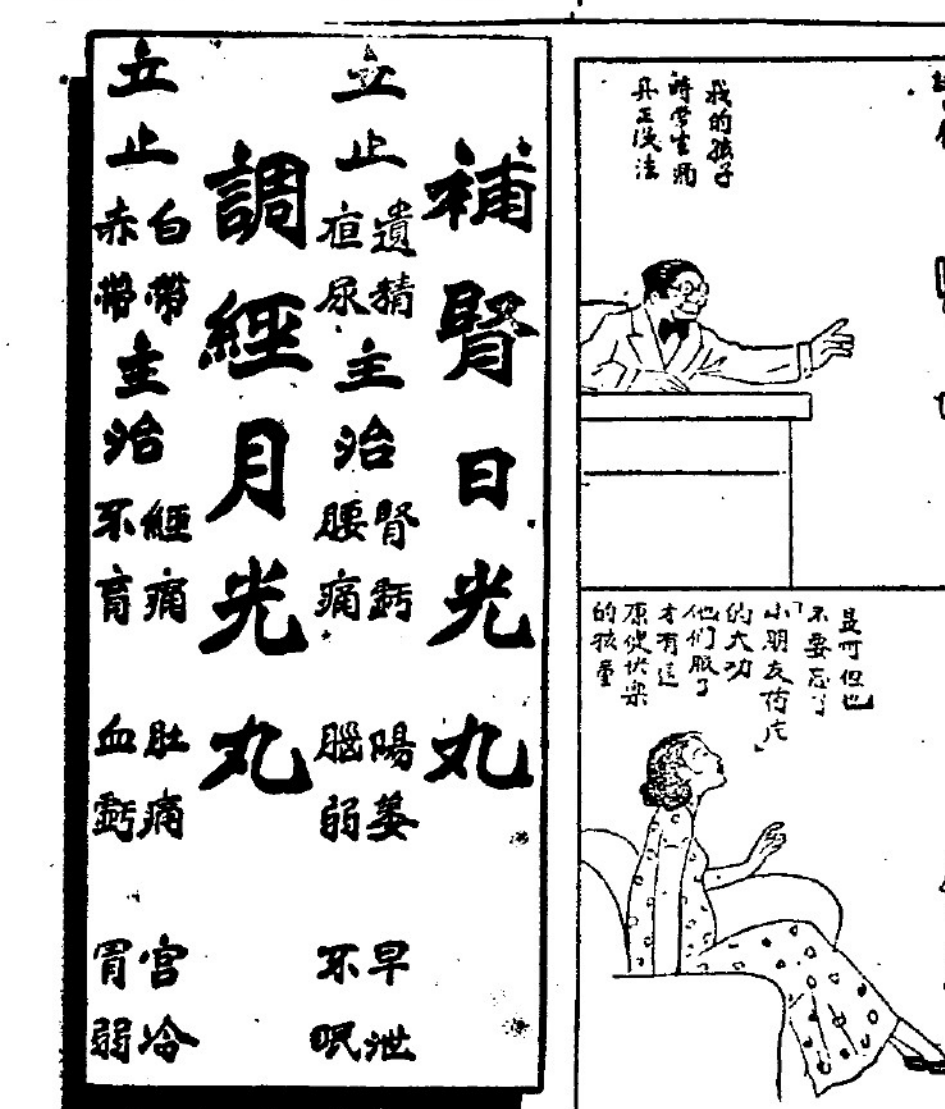 補腎日光丸
立止
遺精
疸尿
主治
腎虧
腰痛
陽萎
腦弱
早泄
不眠
調經月光丸
立止
白帶
赤帶
主治
經痛
不育
肚痛
血虧
宮冷
胃弱
我的孩子
時常生病
真正沒法
是可但也
不要忘了
小朋友
的大功
他們服了
才有這
康健快樂
的孩童